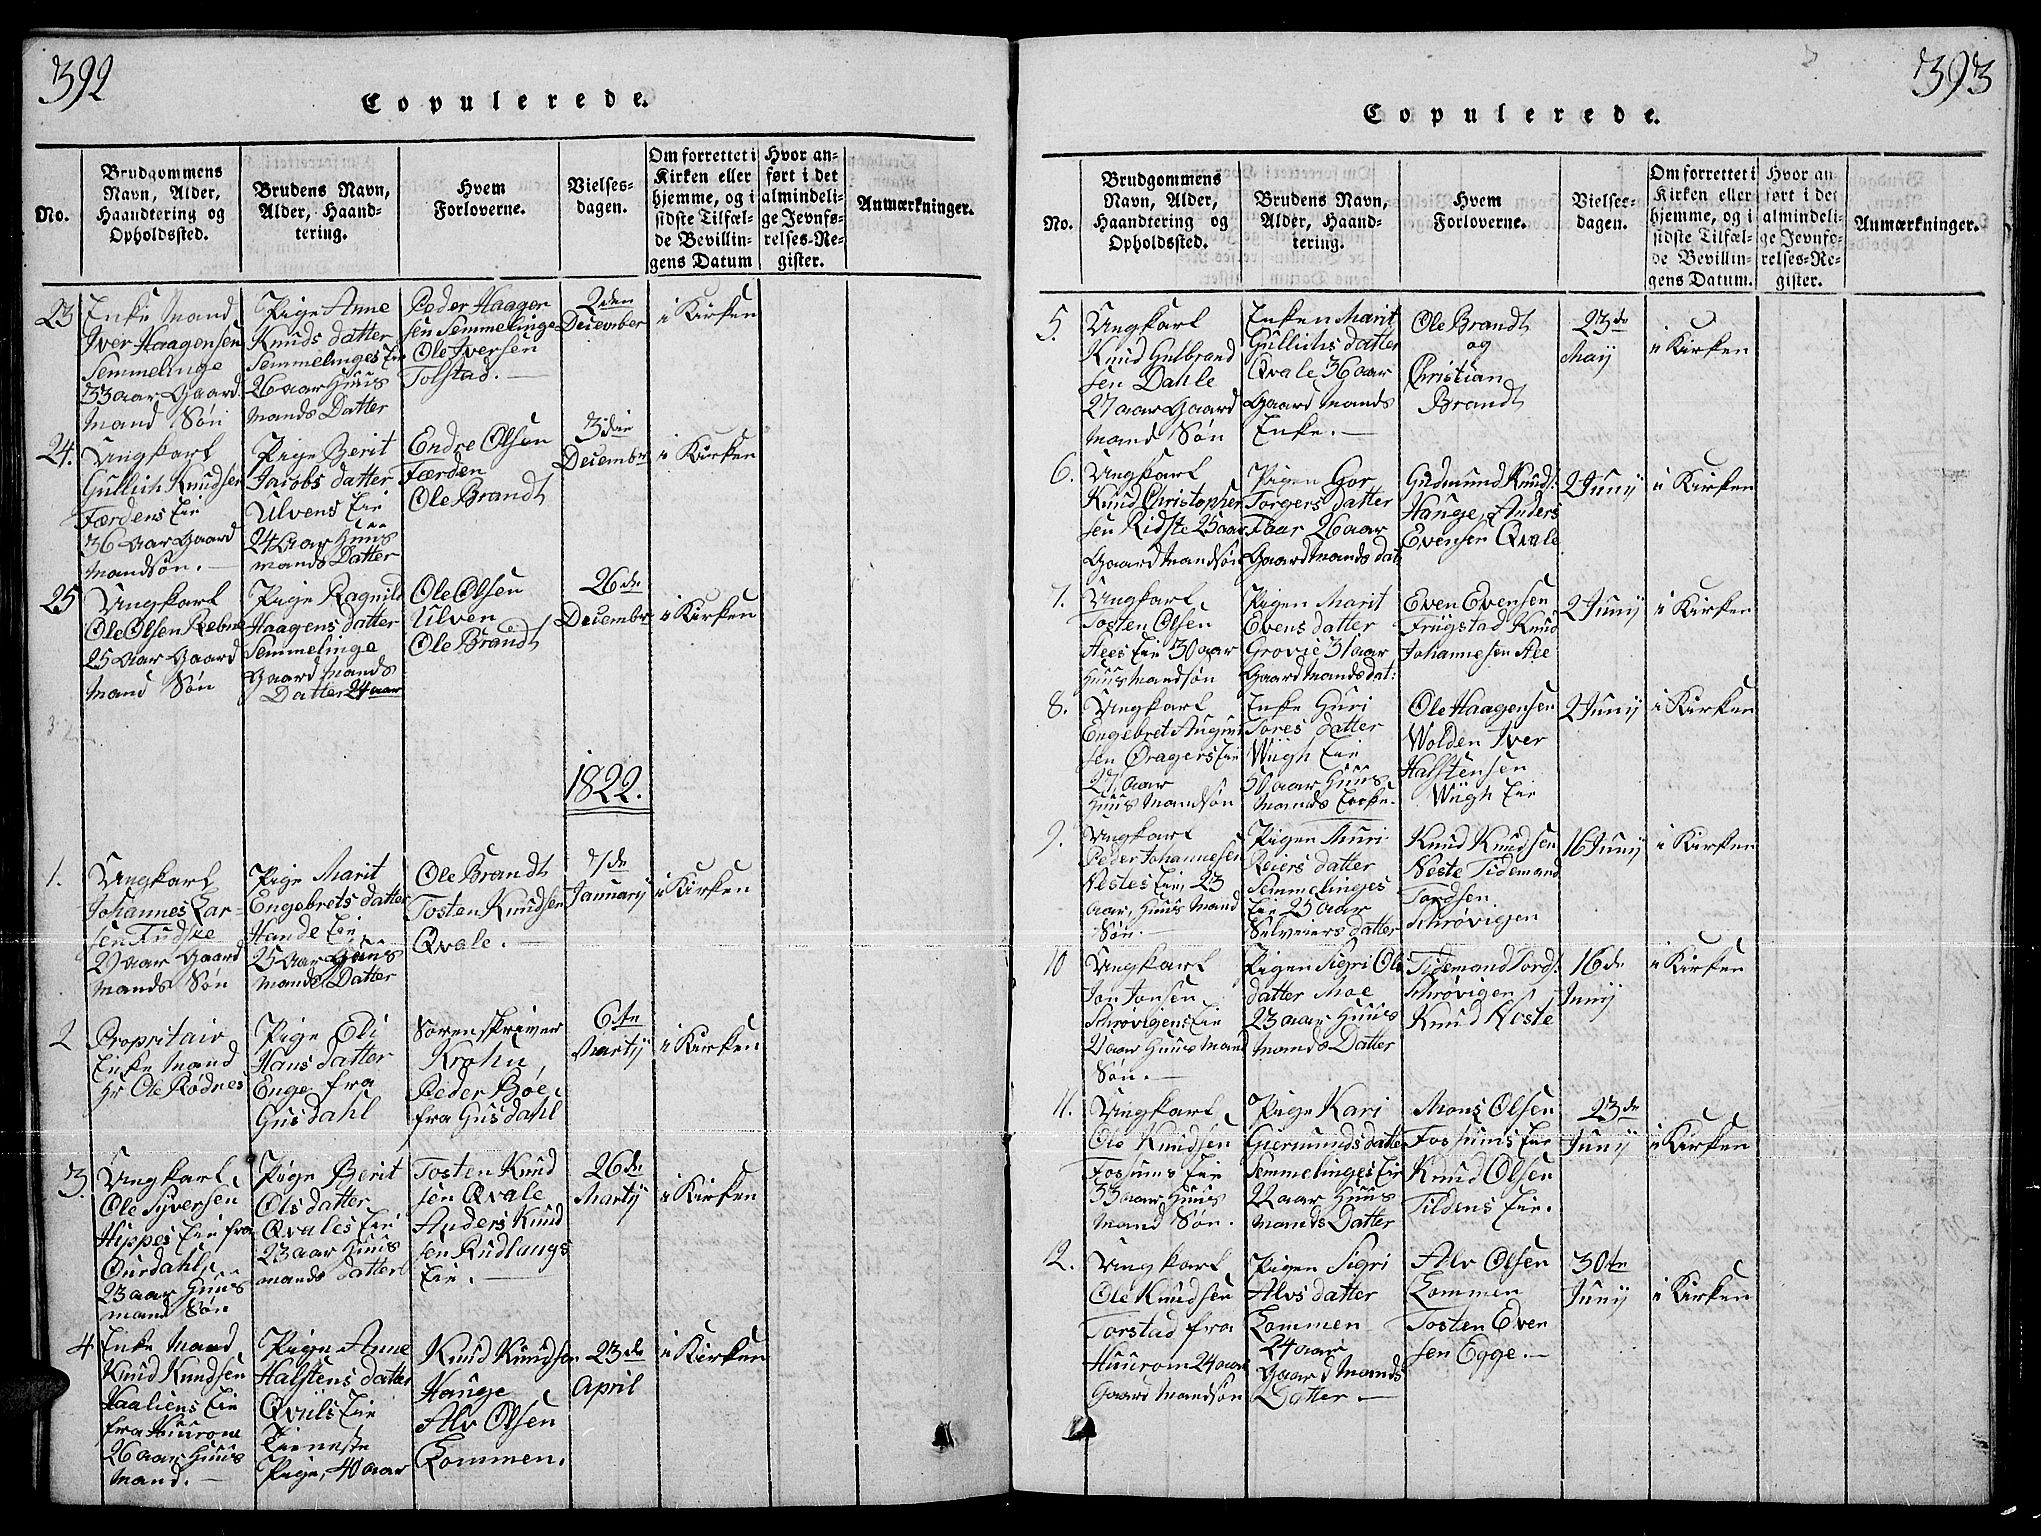 392
Copulerede.
No.
Brudgommens
Navn, Alder,
Haandtering og
Opholdssted.
Brudens Navn,
Alder, Haand-
tering.
Hvem
Forloverne.
Vielses-
dagen.
Om forrettet i
Kirken eller
hjemme, og i
sidste Tilfæl-
de Bevillin-
gens Datum
Hvor an-
ført i det
almindeli-
ge Jevnfø-
relses-Re-
gister.
Anmærkninger.
23
Enke Mand
Iver Haagensen
Semmelinge
33 aar Gaard
Mand Søn
Pige Anne
Knuds datter
Semmelinges Eie
26 aar Huus
mands Datter
Peder Haagen
sen Semmelinge
Ole Iversen
Tolstad.
2den
December
i Kirken
24.
Ungkarl
Gullich Knudsen
Færdens Eie
36 Aar Gaard
Mandsøn.
Pige Berit
Jacobs datter
Ulvens Eie
24 Aar Huus
mands Datter
Endre Olsen
Færden
Ole Brandt
3die
December
i Kirken
25
Ungkarl
Ole Olsen Rebne
25 Aar Gaard
Mand Søn
Pige Ragnild
Haagens datter
Semmelinge
Gaard Mands
Datter 24 aar
Ole Olsen
Ulven
Ole Brandt
26de
December
i Kirken
1822.
1.
Ungkarl
Johannes Lar-
sen Fudske
29 aar Gaard
Mands Søn
Pige Marit
Engebrets datter
Hande Eie
25 Aar Huus
mands Datter
Ole Brandt
Tosten Knudsen
Qvale.
7de
Januarij
i Kirken
2
Propritair
Enke Mand
Hr Ole Rødnes
Pige Eli
Hans datter
Enge fra
Gusdahl
Sorenskriver
Krohn
Peder Bøe
fra Gusdahl
6te
Martij
i Kirken
3.
Ungkarl
Ole Syversen
Hippes Eie fra
Ourdahl,
23 aar Huus
mand Søn
Pige Berit
Ols datter
Qvales Eie
23 aar Huus
mands datter
Tosten Knud
sen Qvale
Anders Knud
sen Rudlangs
Eie.
26de
Martij
i Kirken
4
Enke Mand
Knud Knudsen
Haaliens Eie
fra Huurom
26 aar Huus
Mand.
Pige Anne
Halstens datter
Qvils Eie
Tieneste
Pige, 40 aar
Knud Knudsen
Hauge
Alv Olsen
Lommen.
23de
April
i Kirken
393
Copulerede.
No.
Brudgommens
Navn, Alder,
Haandtering og
Opholdssted.
Brudens Navn,
Alder, Haand-
tering.
Hvem
Forloverne.
Vielses-
dagen.
Om forrettet i
Kirken eller
hjemme, og i
sidste Tilfæl-
de Bevillin-
gens Datum.
Hvor an-
ført i det
almindeli-
ge Jevnfø-
relses-Re-
gister.
Anmærkninger.
5.
Ungkarl
Knud Gulbrand
sen Dahle
27 aar Gaard
Mand Søn
Enken Marit
Gullichs datter
Qvale 36 aar
Gaard Mands
Enke.
Ole Brandt
og
Christian
Brandt
23de
Maij
i Kirken
6.
Ungkarl
Knud Christopher
sen Ridste 25 aar
Gaard Mandsøn
Pigen Gor
Torgers datter
Faar 26 aar
Gaard Mands dat.
Gudmund Knuds:
Hauge, Anders
Evensen Qvale
2 Junij
i Kirken
7.
Ungkarl
Tosten Olsen
Aees Eie 30 aar
Huus Mandsøn
Pigen Marit
Evens datter
Grovie 31 aar
Gaard Mands dat:
Even Evensen
Frügstad Knud
Johannesen Aee
2 Junij
i Kirken
8.
Ungkarl
Engebret Augun
sen Dragers Eie
27 aar
Huus Mandsøn
Enke Guri
Tores datter
Wügh Eie
50 aar Huus
Mands Enke.
Ole Haagensen
Wolden Iver
Halstensen
Wügh Eie
2 Junij
i Kirken
9.
Ungkarl
Peder Johannesen
Nestes Eie, 23
aar, Huus Mand
Søn.
Pigen Muri
Reiers datter
Semmelinges
Eie 25 aar
Selveiers datter
Knud Knudsen
Neste Tidemand
Tordsen
Schrøvigen
16 Junij
i Kirken
10
Ungkarl
Jon Jonsen
Schrøvigens Eie
22 aar Huus Mand
Søn.
Pigen Sigri Ols
datter Moe
23 aar Huus
Mands Datter
Tidemand Tords:
Schrøvigen
Knud Neste
16de
Junij
i Kirken
11.
Ungkarl
Ole Knudsen
Fossums Eie
33 aar Huus
Mand Søn.
Pige Kari
Giermunds datter
Semmelinges Eie
22 aar Huus
Mands Datter
Mons Olsen
Fossums Eie
Knud Olsen
Tildens Eie.
23de
Junij
i Kirken
12.
Ungkarl
Ole Knudsen
Torstad fra
Huurom 24 aar
Gaard Mandsøn
Pigen Sigri
Alvs datter
Lommen
24 aar
Gaard Mands
Datter
Alv Olsen
Lommen
Tosten Even
sen Egge.
30te
Junij
i Kirken